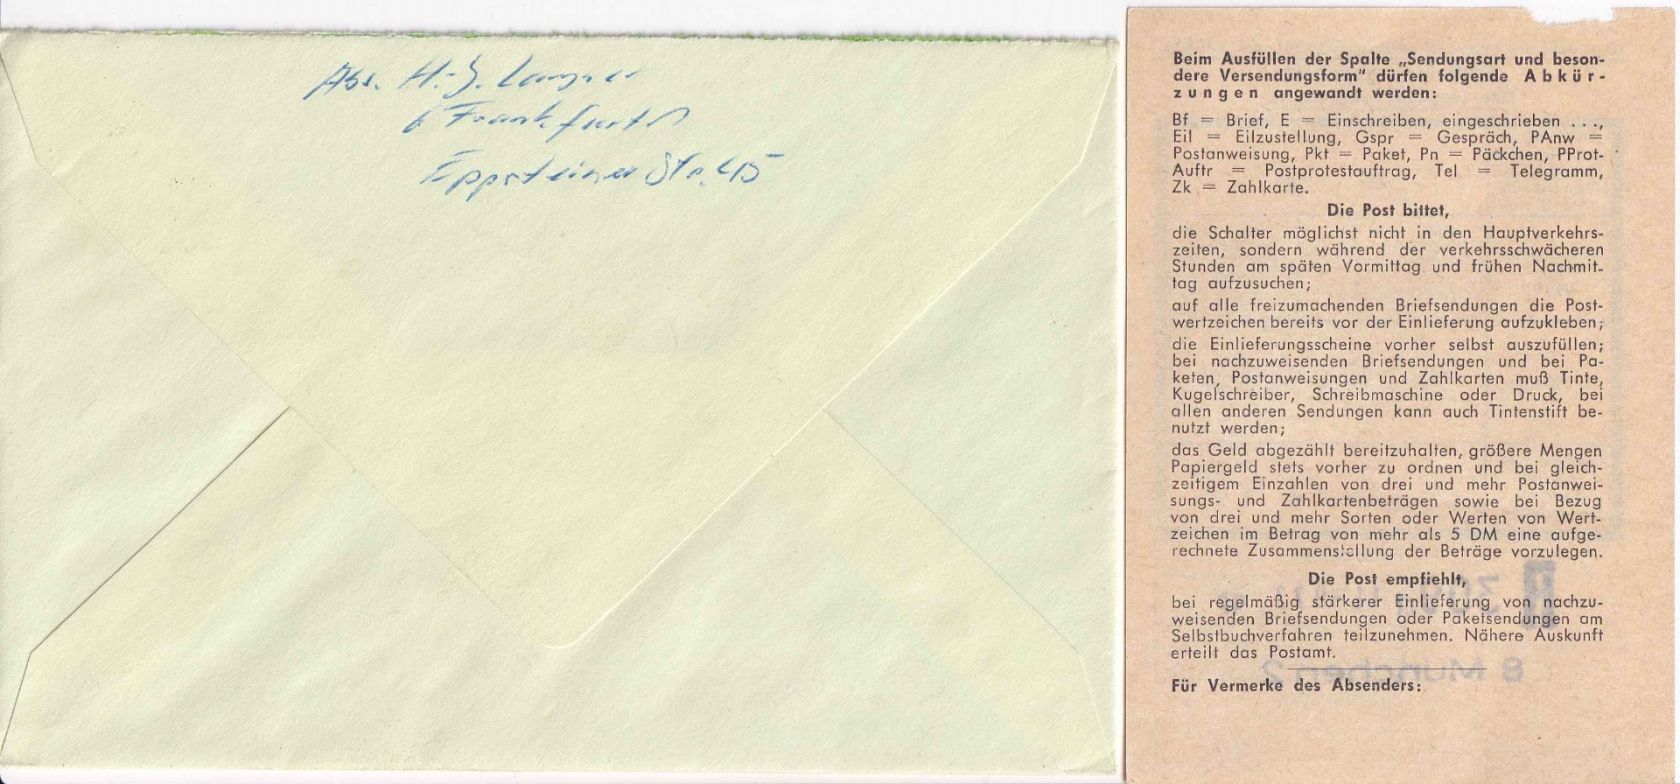 Abs. H.-J. Langner
6 Frankfurt
Eppsteiner Str. 45
Beim Ausfüllen der Spalte „Sendungsart und beson-
dere Versendungsform“ dürfen folgende Abkür-
zungen angewandt werden:
Bf = Brief, E = Einschreiben, eingeschrieben ...,
Eil = Eilzustellung, Gspr = Gespräch, PAnw =
Postanweisung, Pkt = Paket, Pn = Päckchen, PProt-
Auftr = Postprotestauftrag, Tel = Telegramm,
Zk = Zahlkarte.
Die Post bittet,
die Schalter möglichst nicht in den Hauptverkehrs-
zeiten, sondern während der verkehrsschwächeren
Stunden am späten Vormittag und frühen Nachmit-
tag aufzusuchen;
auf alle freizumachenden Briefsendungen die Post-
wertzeichen bereits vor der Einlieferung aufzukleben;
die Einlieferungsscheine vorher selbst auszufüllen;
bei nachzuweisenden Briefsendungen und bei Pa-
keten, Postanweisungen und Zahlkarten muß Tinte,
Kugelschreiber, Schreibmaschine oder Druck, bei
allen anderen Sendungen kann auch Tintenstift be-
nutzt werden;
das Geld abgezählt bereitzuhalten, größere Mengen
Papiergeld stets vorher zu ordnen und bei gleich-
zeitigem Einzahlen von drei und mehr Postanwei-
sungs- und Zahlkartenbeträgen sowie bei Bezug
von drei und mehr Sorten oder Werten von Wert-
zeichen im Betrag von mehr als 5 DM eine aufge-
rechnete Zusammenstellung der Beträge vorzulegen.
Die Post empfiehlt,
bei regelmäßig stärkerer Einlieferung von nachzu-
weisenden Briefsendungen oder Paketsendungen am
Selbstbuchverfahren teilzunehmen. Nähere Auskunft
erteilt das Postamt.
8 München 2
Für Vermerke des Absenders: